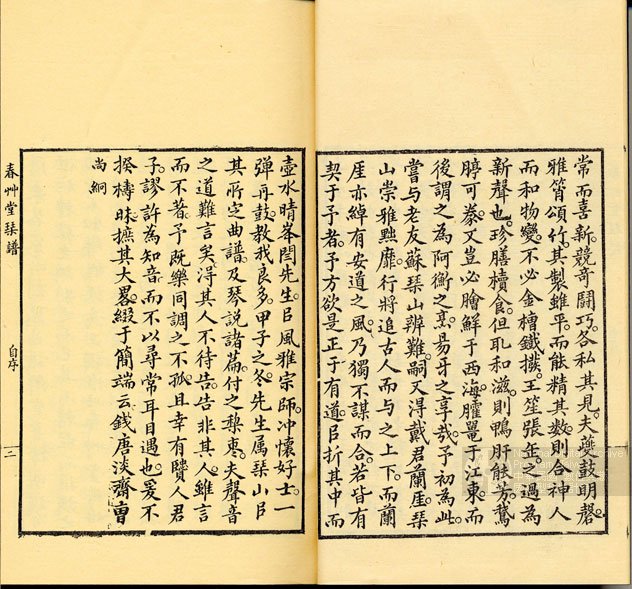 常而喜新競奇鬪巧各私其見夫夔鼓明磬
雅管頌竹其製雖平而能精其數則合神人
而和物變不必金檜鐵撥王笙張歪之過為
新聲也珍膳櫝食但取和滋則鴨胹能芳鵞
臇可豢又豈必膾鮮于西海臛黿于江東而
後謂之為阿衡之烹易牙之享哉予初為此
嘗与老友蘇琹山辨難嗣又淂戴君蘭厓琹
山崇雅黜靡行將追古人而与之上下而蘭
厓亦綽有安道之風乃獨不謀而合若皆有
契于予者予方欲是正于有道㠯折其中而
壺水晴峯閆先生㠯風雅宗師冲懷好士一
彈再鼓教我良多甲子之冬先生属琹山㠯
其所定曲譜及琴說諸萹付之棃棗夫聲音
之道難言矣淂其人不待告告非其人雖言
而不著予既樂同調之不孤且幸有賢人君
子謬許為知音而不以尋常耳目遇也爰不
揆檮昧摭其大畧綴于簡端云錢唐淡齋曺
尚絅
春艸堂琹譜
自序
二